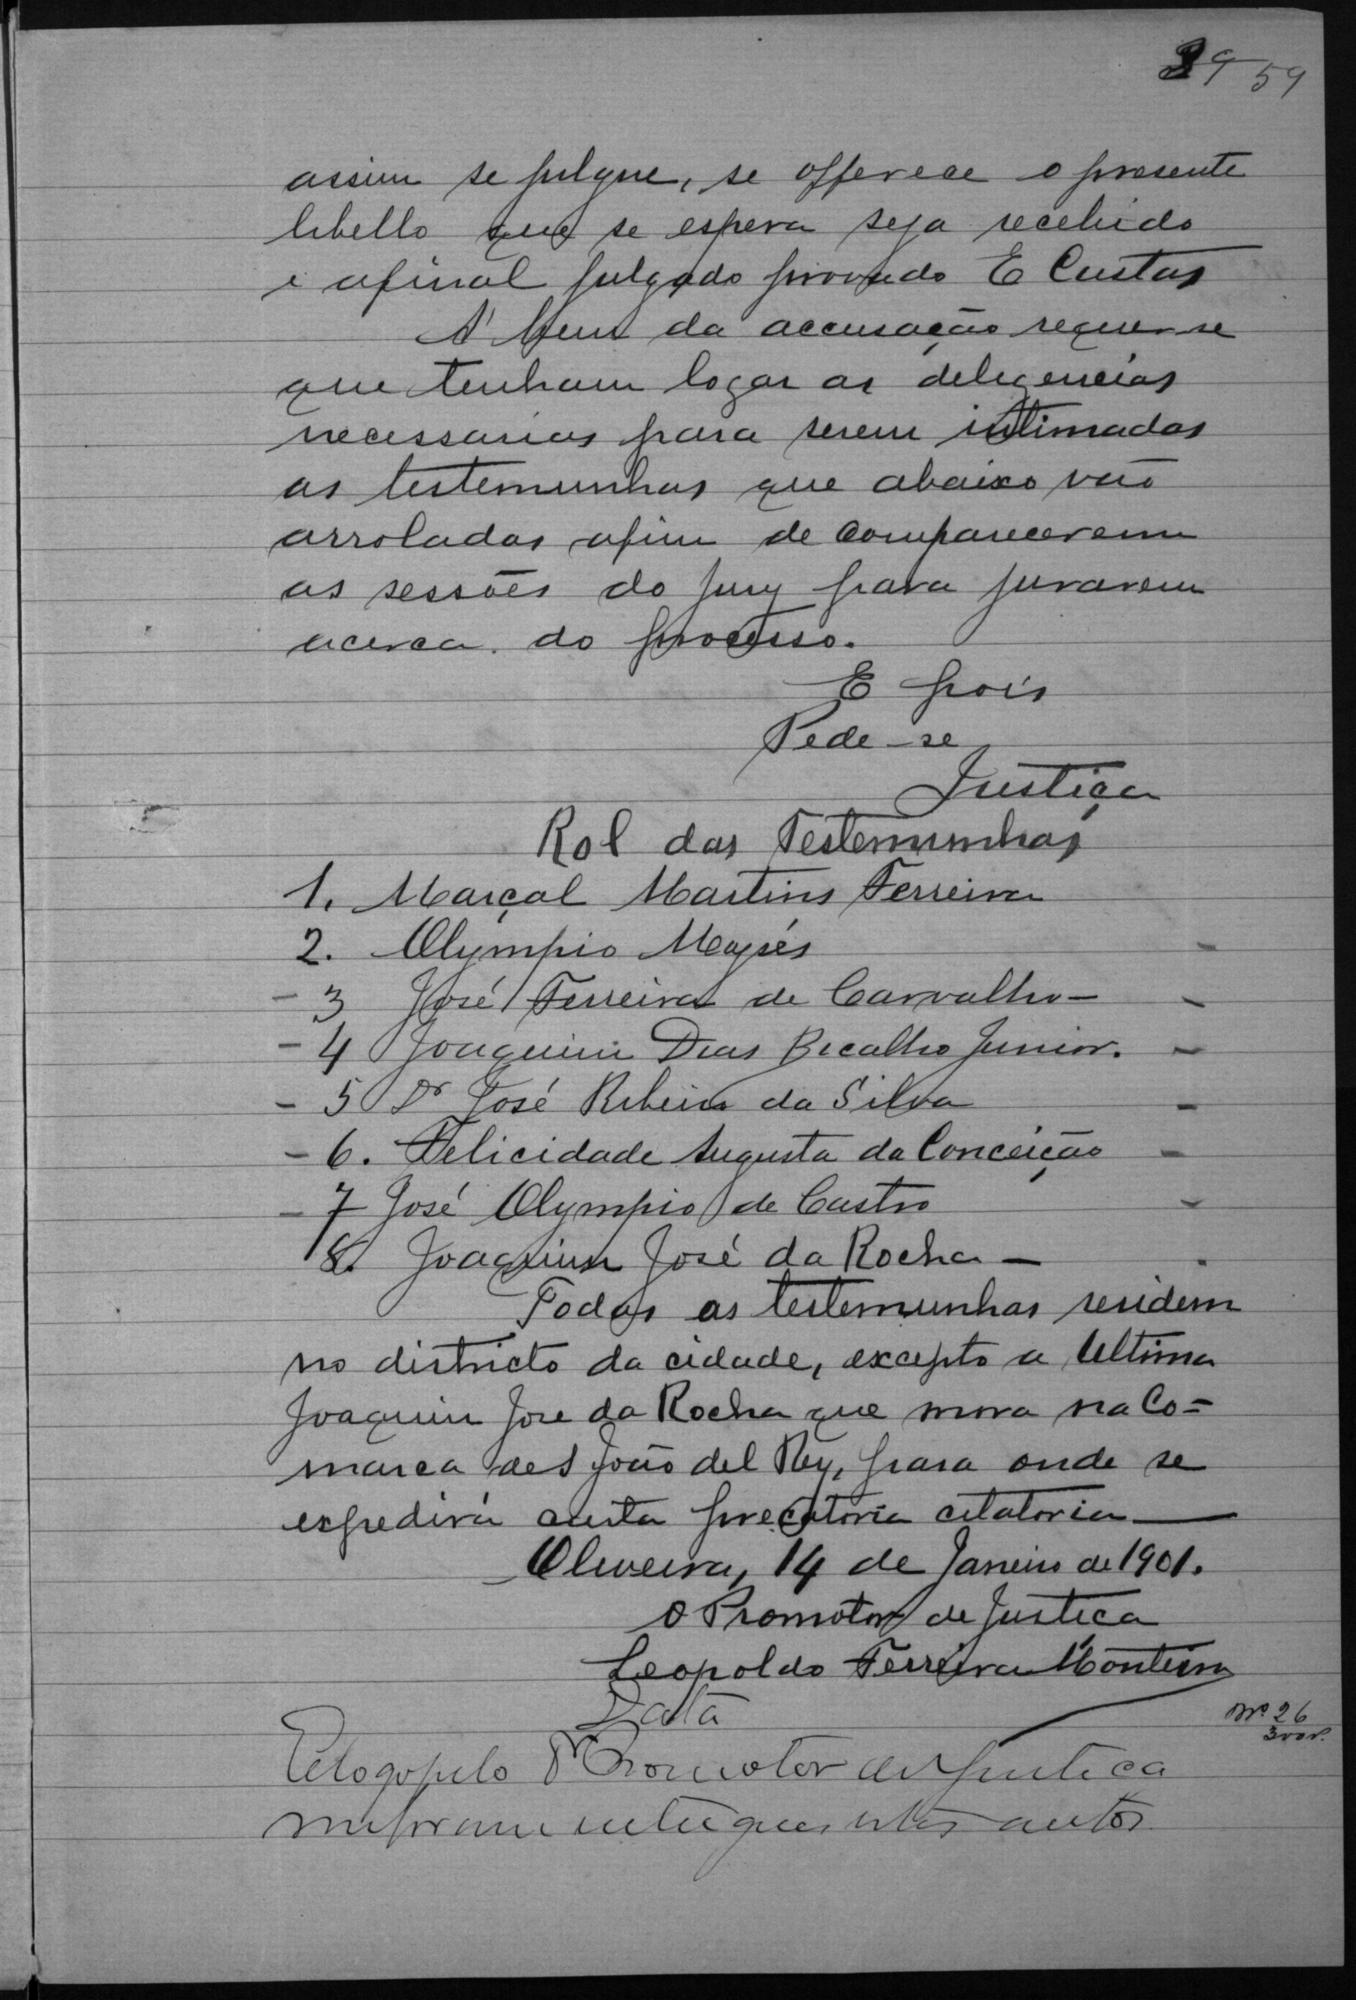 39 59
assim se julgue, se offerece o presente
libello que se espera seja recebido
e afinal julgado provado E Custas
A' bem da accusação requer-se
que tenham logar as deligencias
necessarias para serem intimadas
as testemunhas que abaixo vão
arroladas afim de comparecerem
as sessões do jury para jurarem
acerca do processo.
E pois
Pede-se
Justiça
Rol das Testemunhas
1. Marçal Martins Ferreira
2. Olympio Moysés -
- 3 José Ferreira de Carvalho - -
- 4 Joaquim Dias Bicalho Junior. -
- 5 Dr José Ribeiro da Silva -
- 6. Felicidade Augusta da Conceição -
- 7 José Olympio de Castro -
8. Joaquim José da Rocha -
Todas as testemunhas residem
no districto da cidade, excepto a ultima
Joaquim Jose da Rocha que mora na Co=
marca de S João del Rey, para onde se
expedirá carta precatoria citatoria
Oliveira, 14 de Janeiro de 1901.
O Promotor de Justiça
Leopoldo Ferreira Monteiro
Data
Nº 26
E logo pelo Promotor de Justiça
me foram entregues estes autos